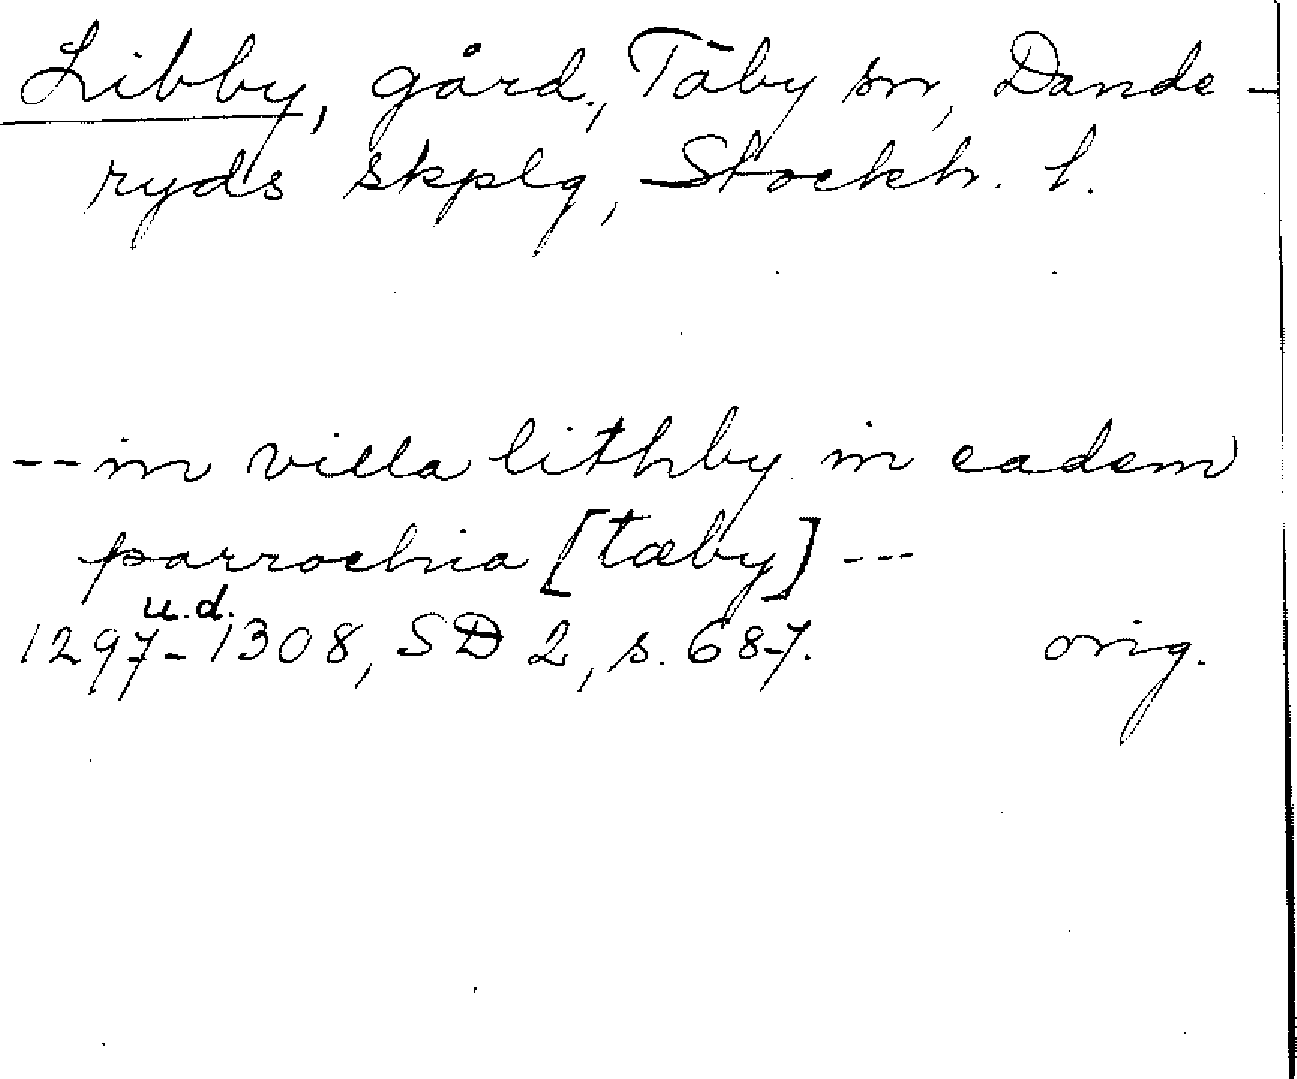 Libby, gård, Täby sn, Dande-
ryds skplg, Stockh. l.
--in villa lithby in eadem
parrochia [tæby]---
u.d.
1297-1308, SD 2, s. 687. orig.